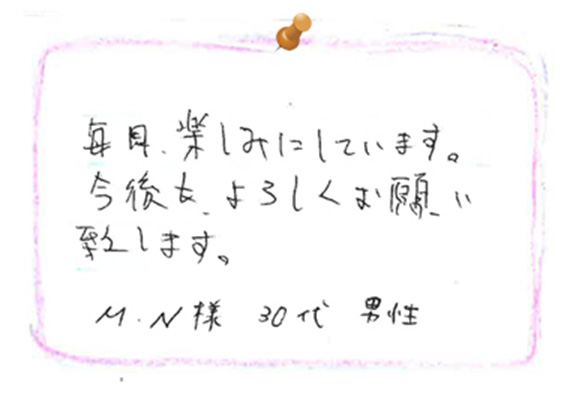 毎月、楽しみにしています。
今後も、よろしくお願い
致します。
M.N様 30代 男性